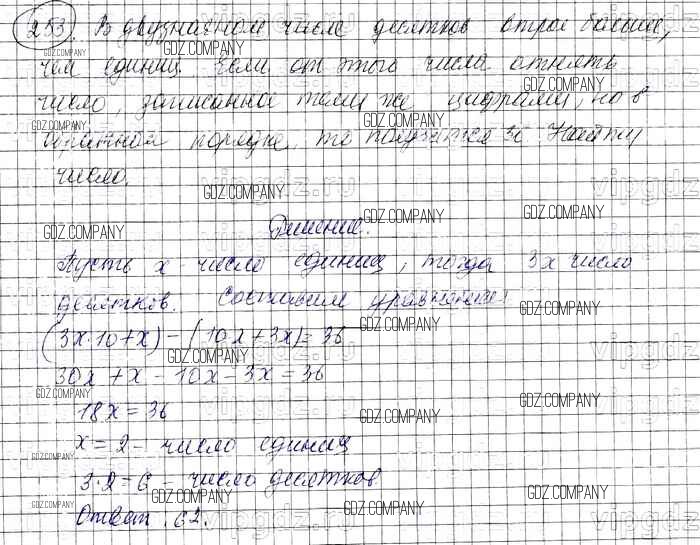 253. В двузначном числе десятков втрое больше,
чем единиц. Если от этого числа отнять
число, записанное теми же цифрами, но в
обратном порядке, то получится 36. Найти
число.
Решение.
Пусть x - число единиц, тогда 3x число
десятков. Составим уравнение
(3x·10+x)-(10x+3x)=36
30x+x-10x-3x=36
18x=36
x=2- число единиц
3·2=6- число десятков
Ответ. 62.
GDZ.COMPANY
vipgdz.ru